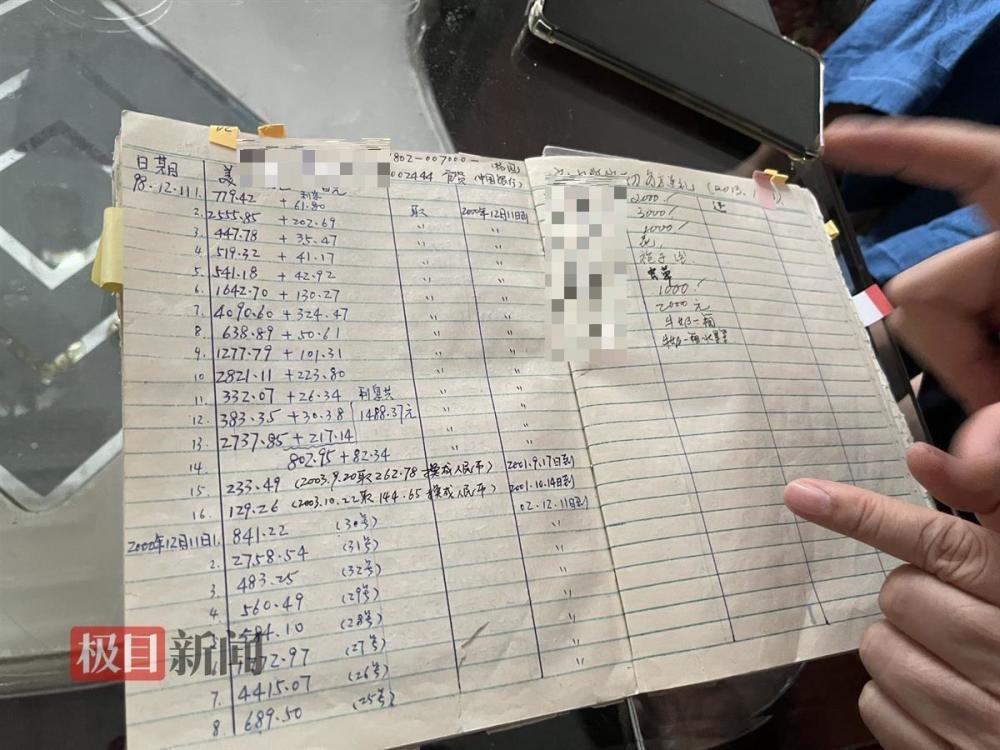 日期 美 1802-007000- (韩国)
002444 中国银行)
98.12.11 1. 779.42 + 61.80 利息
2. 2555.85 + 202.69 取 2000年12月11日到
3. 447.78 + 35.47 〃 〃
4. 519.32 + 41.17 〃 〃
5. 541.18 + 42.92 〃 〃
6. 1642.70 + 130.27 〃 〃
7. 4090.60 + 324.47 〃 〃
8. 638.89 + 50.61 〃 〃
9. 1277.79 + 101.31 〃 〃
10 2821.11 + 223.80 〃 〃
11. 332.07 + 26.34 利息共 〃 〃
12. 383.35 + 30.38 1488.37元 〃 〃
13. 2737.85 + 217.14 〃 〃
14. 802.95 + 82.34 〃 〃
15. 233.49 (2003.9.20取262.78 换成人民币) 2001.9.17日到
16. 129.26 (2003.10.22取144.65 换成人民币) 2001.10.14日到
2000年12月11日 1. 841.22 (30号) 02.12.11日到
2. 2758.54 (31号) 〃
3. 483.25 (32号) 〃
4. 560.49 (29号) 〃
584.10 (28号) 〃
2.97 (27号) 〃
7. 4415.07 (26号) 〃
8. 689.50 (25号) 〃
(2013.1
2000
3000
1000
花
1000
2000元
牛奶一箱
极目新闻